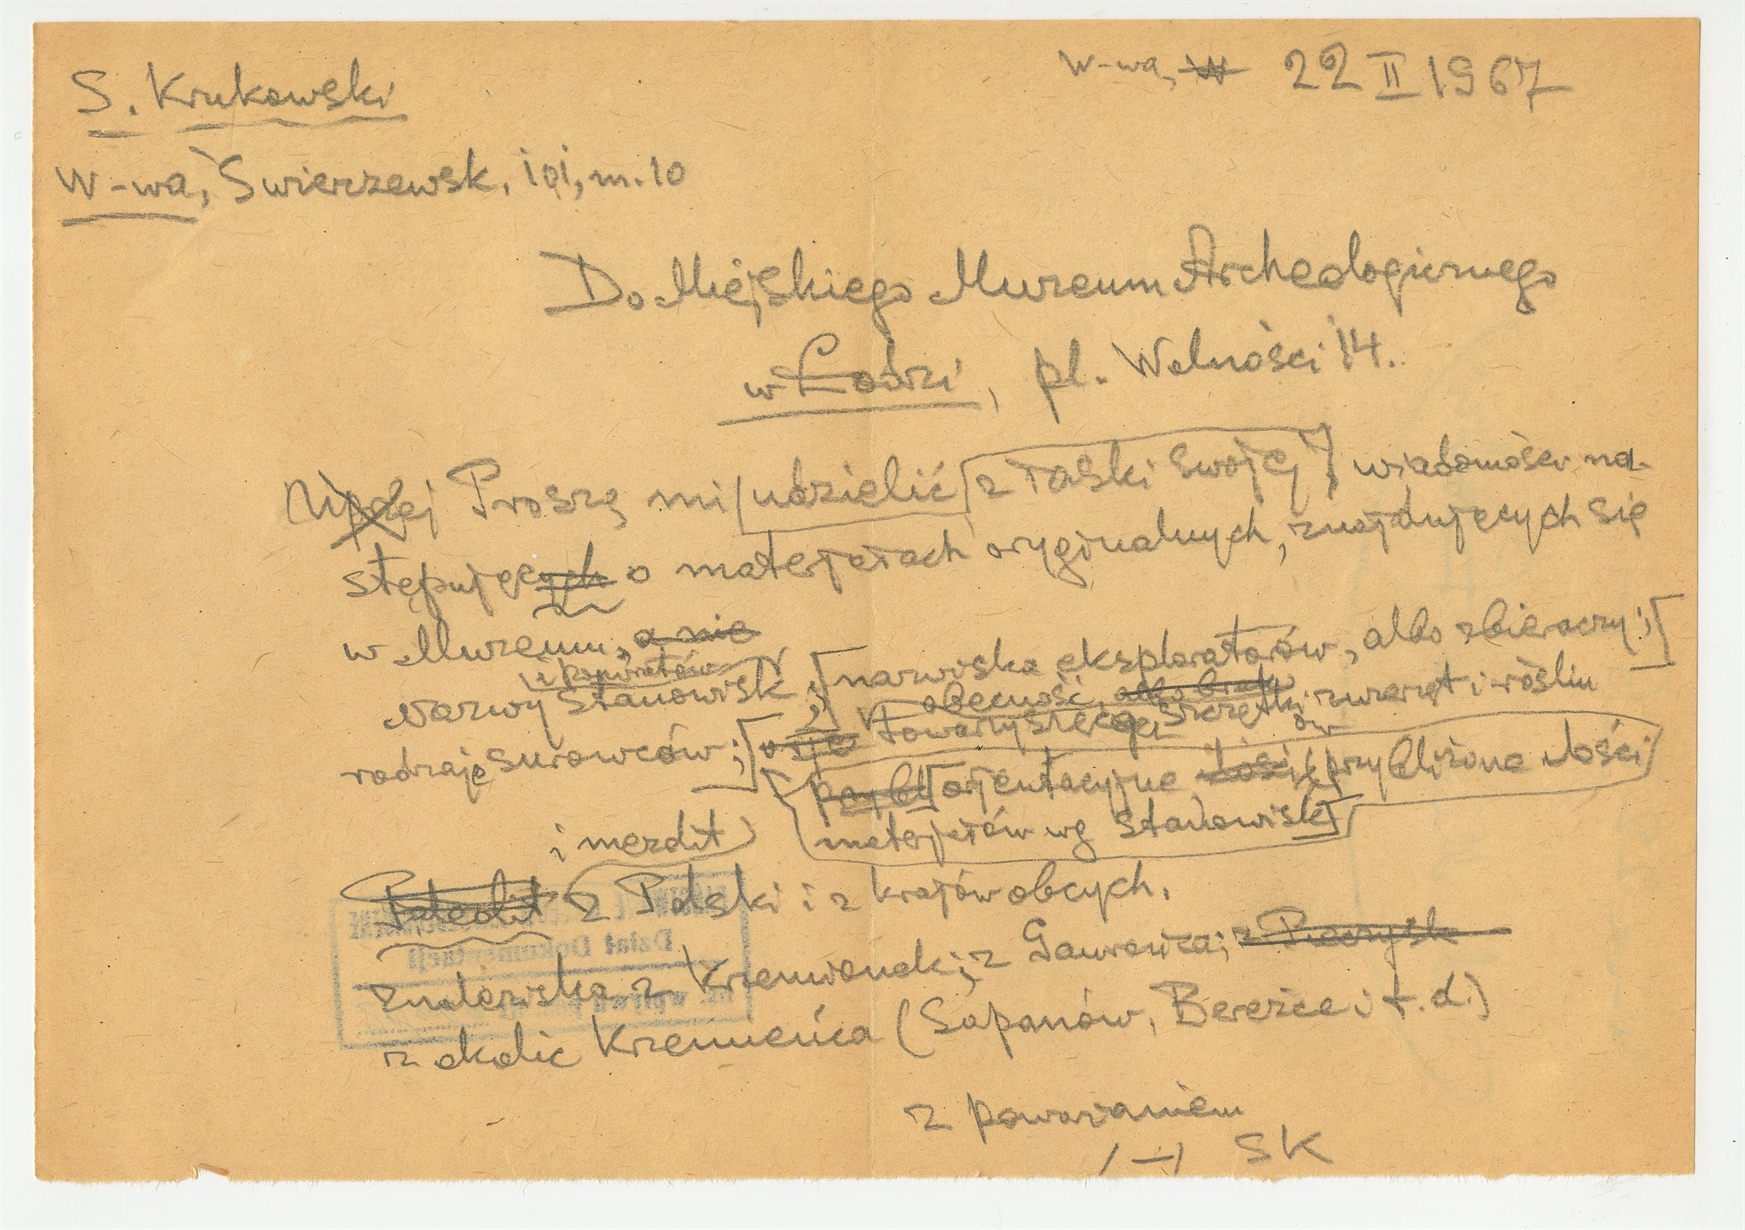 S. Krukowski
W-wa, W 22 II 1967
W-wa, Świerzewsk. 101, m. 10
Do Miejskiego Muzeum Archeologicznego
w Łodzi, pl. Wolności 14.
Proszę mi udzielić z łaski swojej wiadomości na-
stępujących o materjałach oryginalnych, znajdujących się
w Muzeum, a nie
i powiatów
Nazwy stanowisk, nazwiska eksploratorów, albo zbieraczy;
obecność, albo brak
rodzaje surowców; towarzysząca szczątków zwierząt i roślin
przybl orjentacyjne ilości przybliżone ilości
materjałów wg stanowisk
i mezolit
Paleolit z Polski i z krajów obcych.
znalezisko z Krzemionek; z Gawrońca; z Pieczysk
z okolic Krzemieńca (Sapanów, Bereżce i t. d.)
z poważaniem
/-/ SK
Dział Dokumentacji